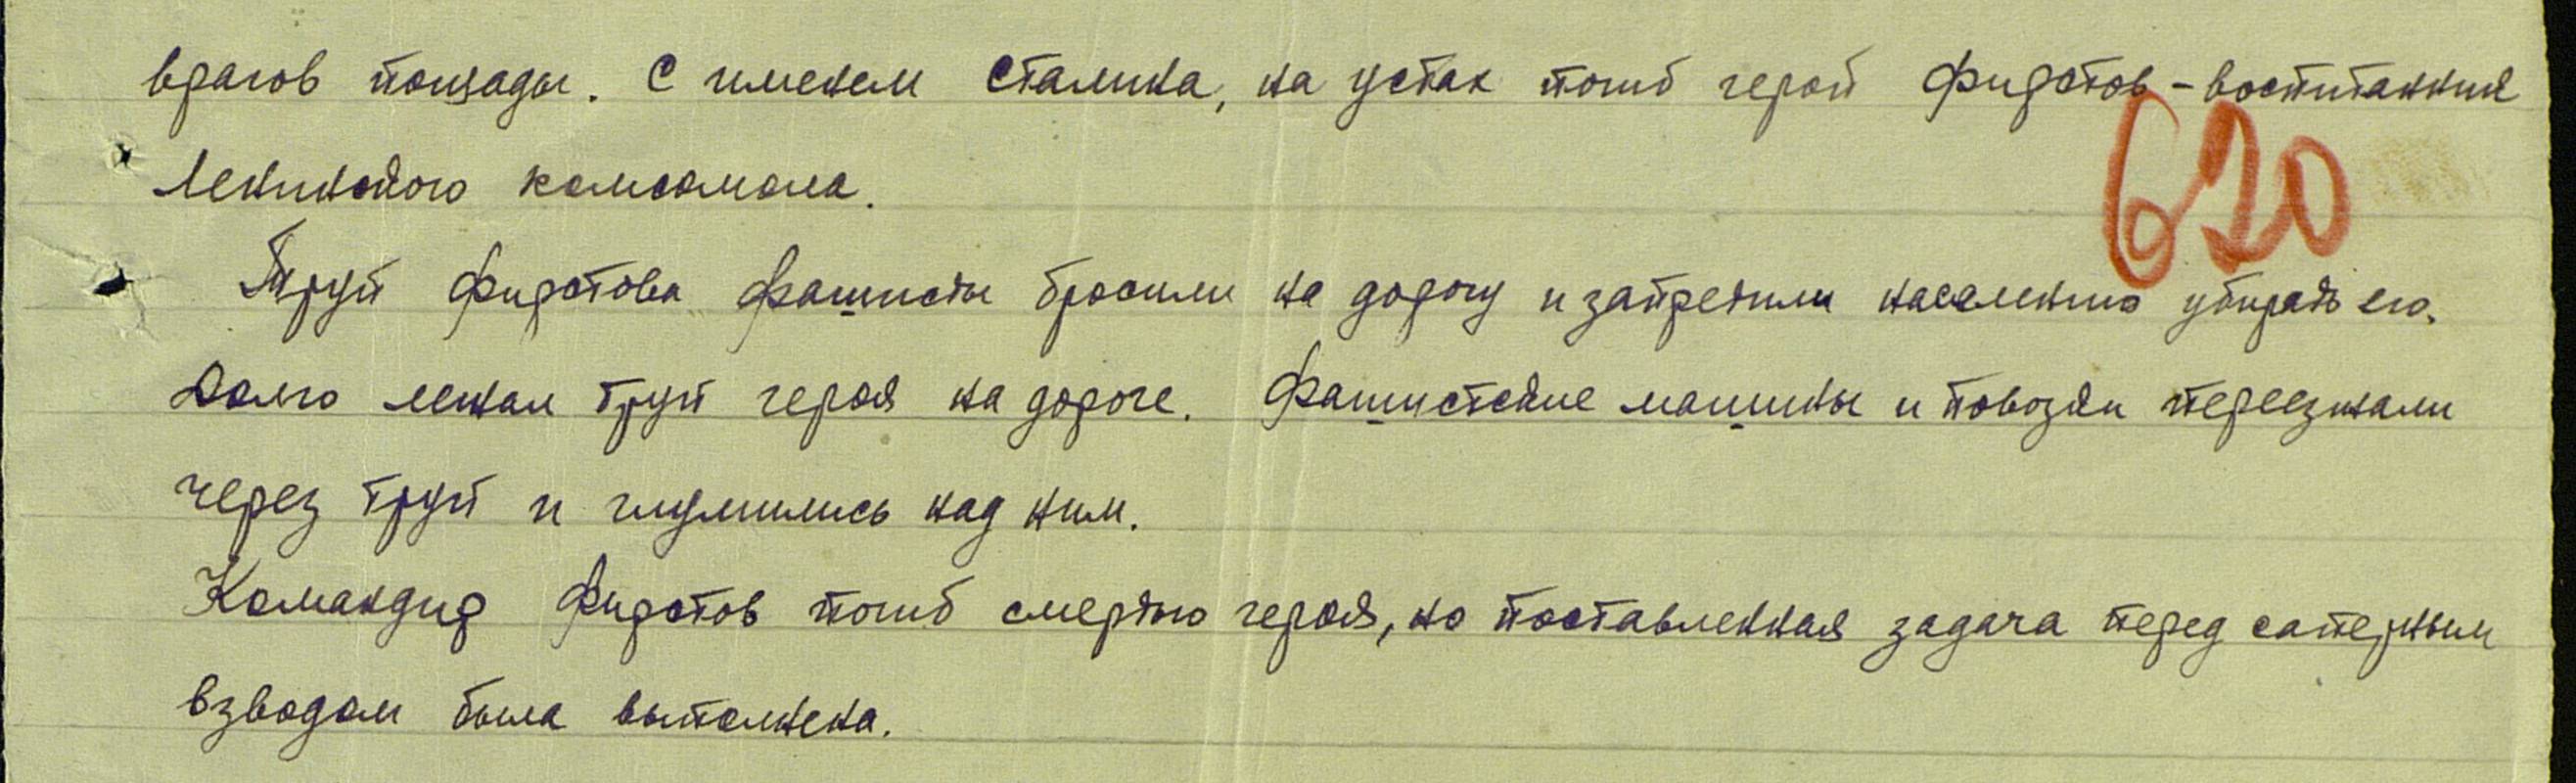 врагов пощады. С именем Сталина, на устах погиб герой Фирстов - воспитанник
620
Ленинского комсомола.
Труп Фирстова фашисты бросили на дорогу и запретили населению убирать его.
Долго лежал труп героя на дороге. Фашистские машины и повозки переезжали
через труп и глумились над ним.
Командир Фирстов погиб смертью героя, но поставленная задача перед саперным
взводом была выполнена.